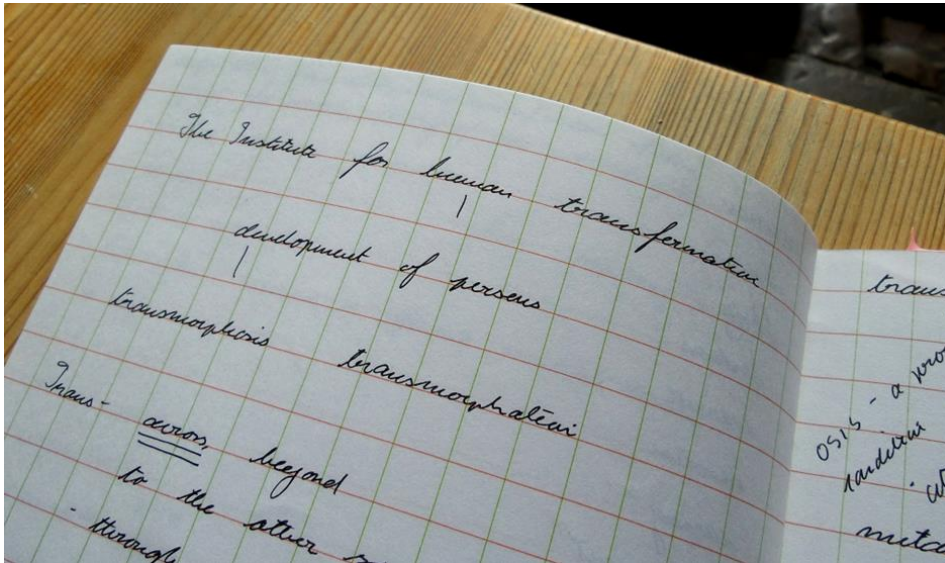 The Institute for human transformation
development of persons
transmorphosis transmorphation
Trans- across, beyond
to the other
- through
trans
osis - a